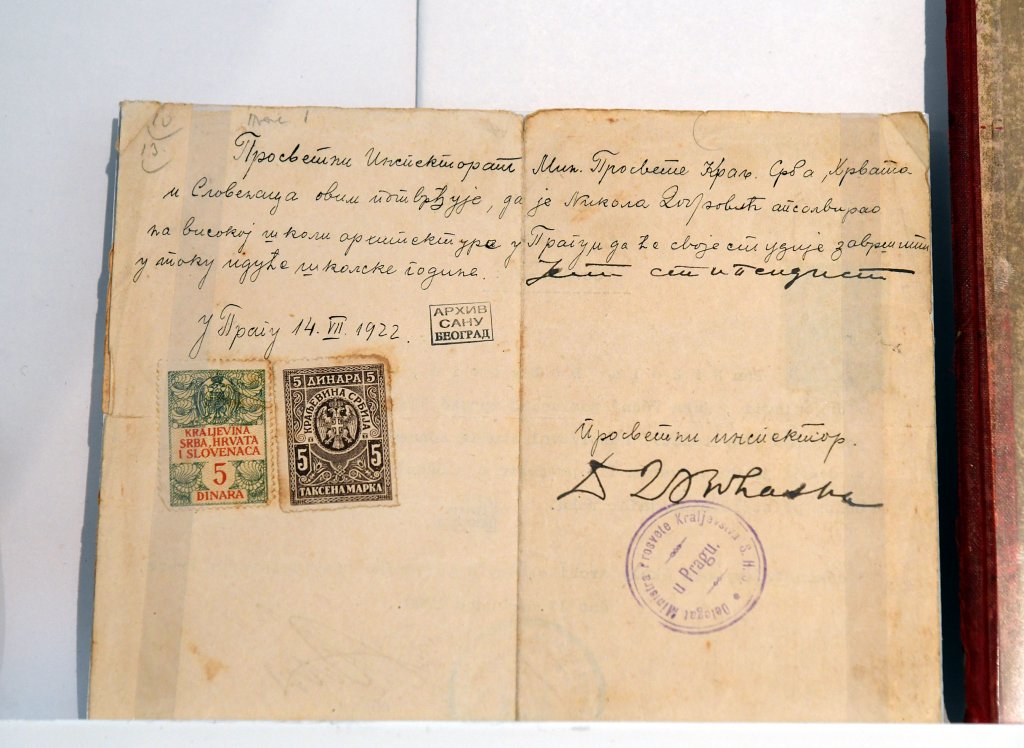 Просветни Инспекторат Мин. Просвете Краљ. Срба, Хрвата
и Словенаца овим потврђује, да је Никола Добровић апсолвирао
на високој школи архитектуре у Прагу и да ће своје студије завршити
у току идуће школске године.
У Прагу 14. VII. 1922.
АРХИВ
САНУ
БЕОГРАД
KRALJEVINA
SRBA, HRVATA
I SLOVENACA
5
DINARA
5 ДИНАРА 5
КРАЉЕВИНА СРБИЈА
5 5
ТАКСЕНА МАРКА
Просветни инспектор.
Delegat Ministra Prosvete Kraljevstva S. H. S.
u Pragu.
13.